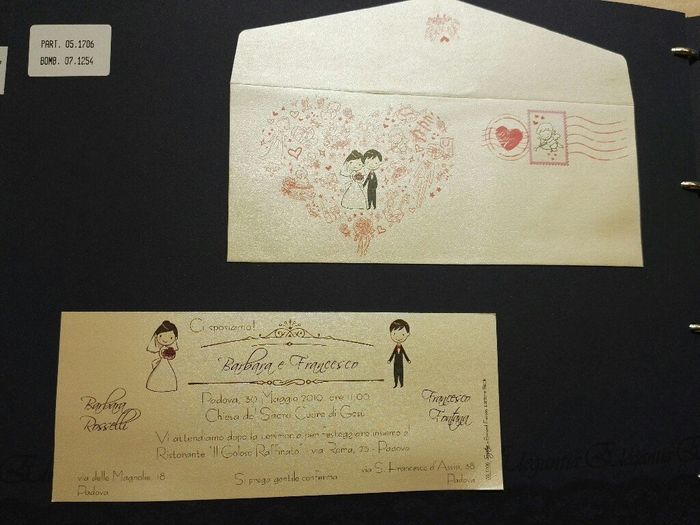 PART. 05.1706
BOMB. 07.1254
Ci sposiamo!
Barbara e Francesco
Padova, 30 Maggio 2010 ore 11,00
Chiesa del Sacro Cuore di Gesù
Barbara
Rosselli
Francesco
Fontana
Vi attendiamo dopo la cerimonia per festeggiare insieme al
Ristorante "Il Goloso Raffinato" - via Roma, 25 - Padova
via delle Magnolie, 18
Padova
Si prega gentile conferma
via S. Francesco d'Assisi, 38
Padova